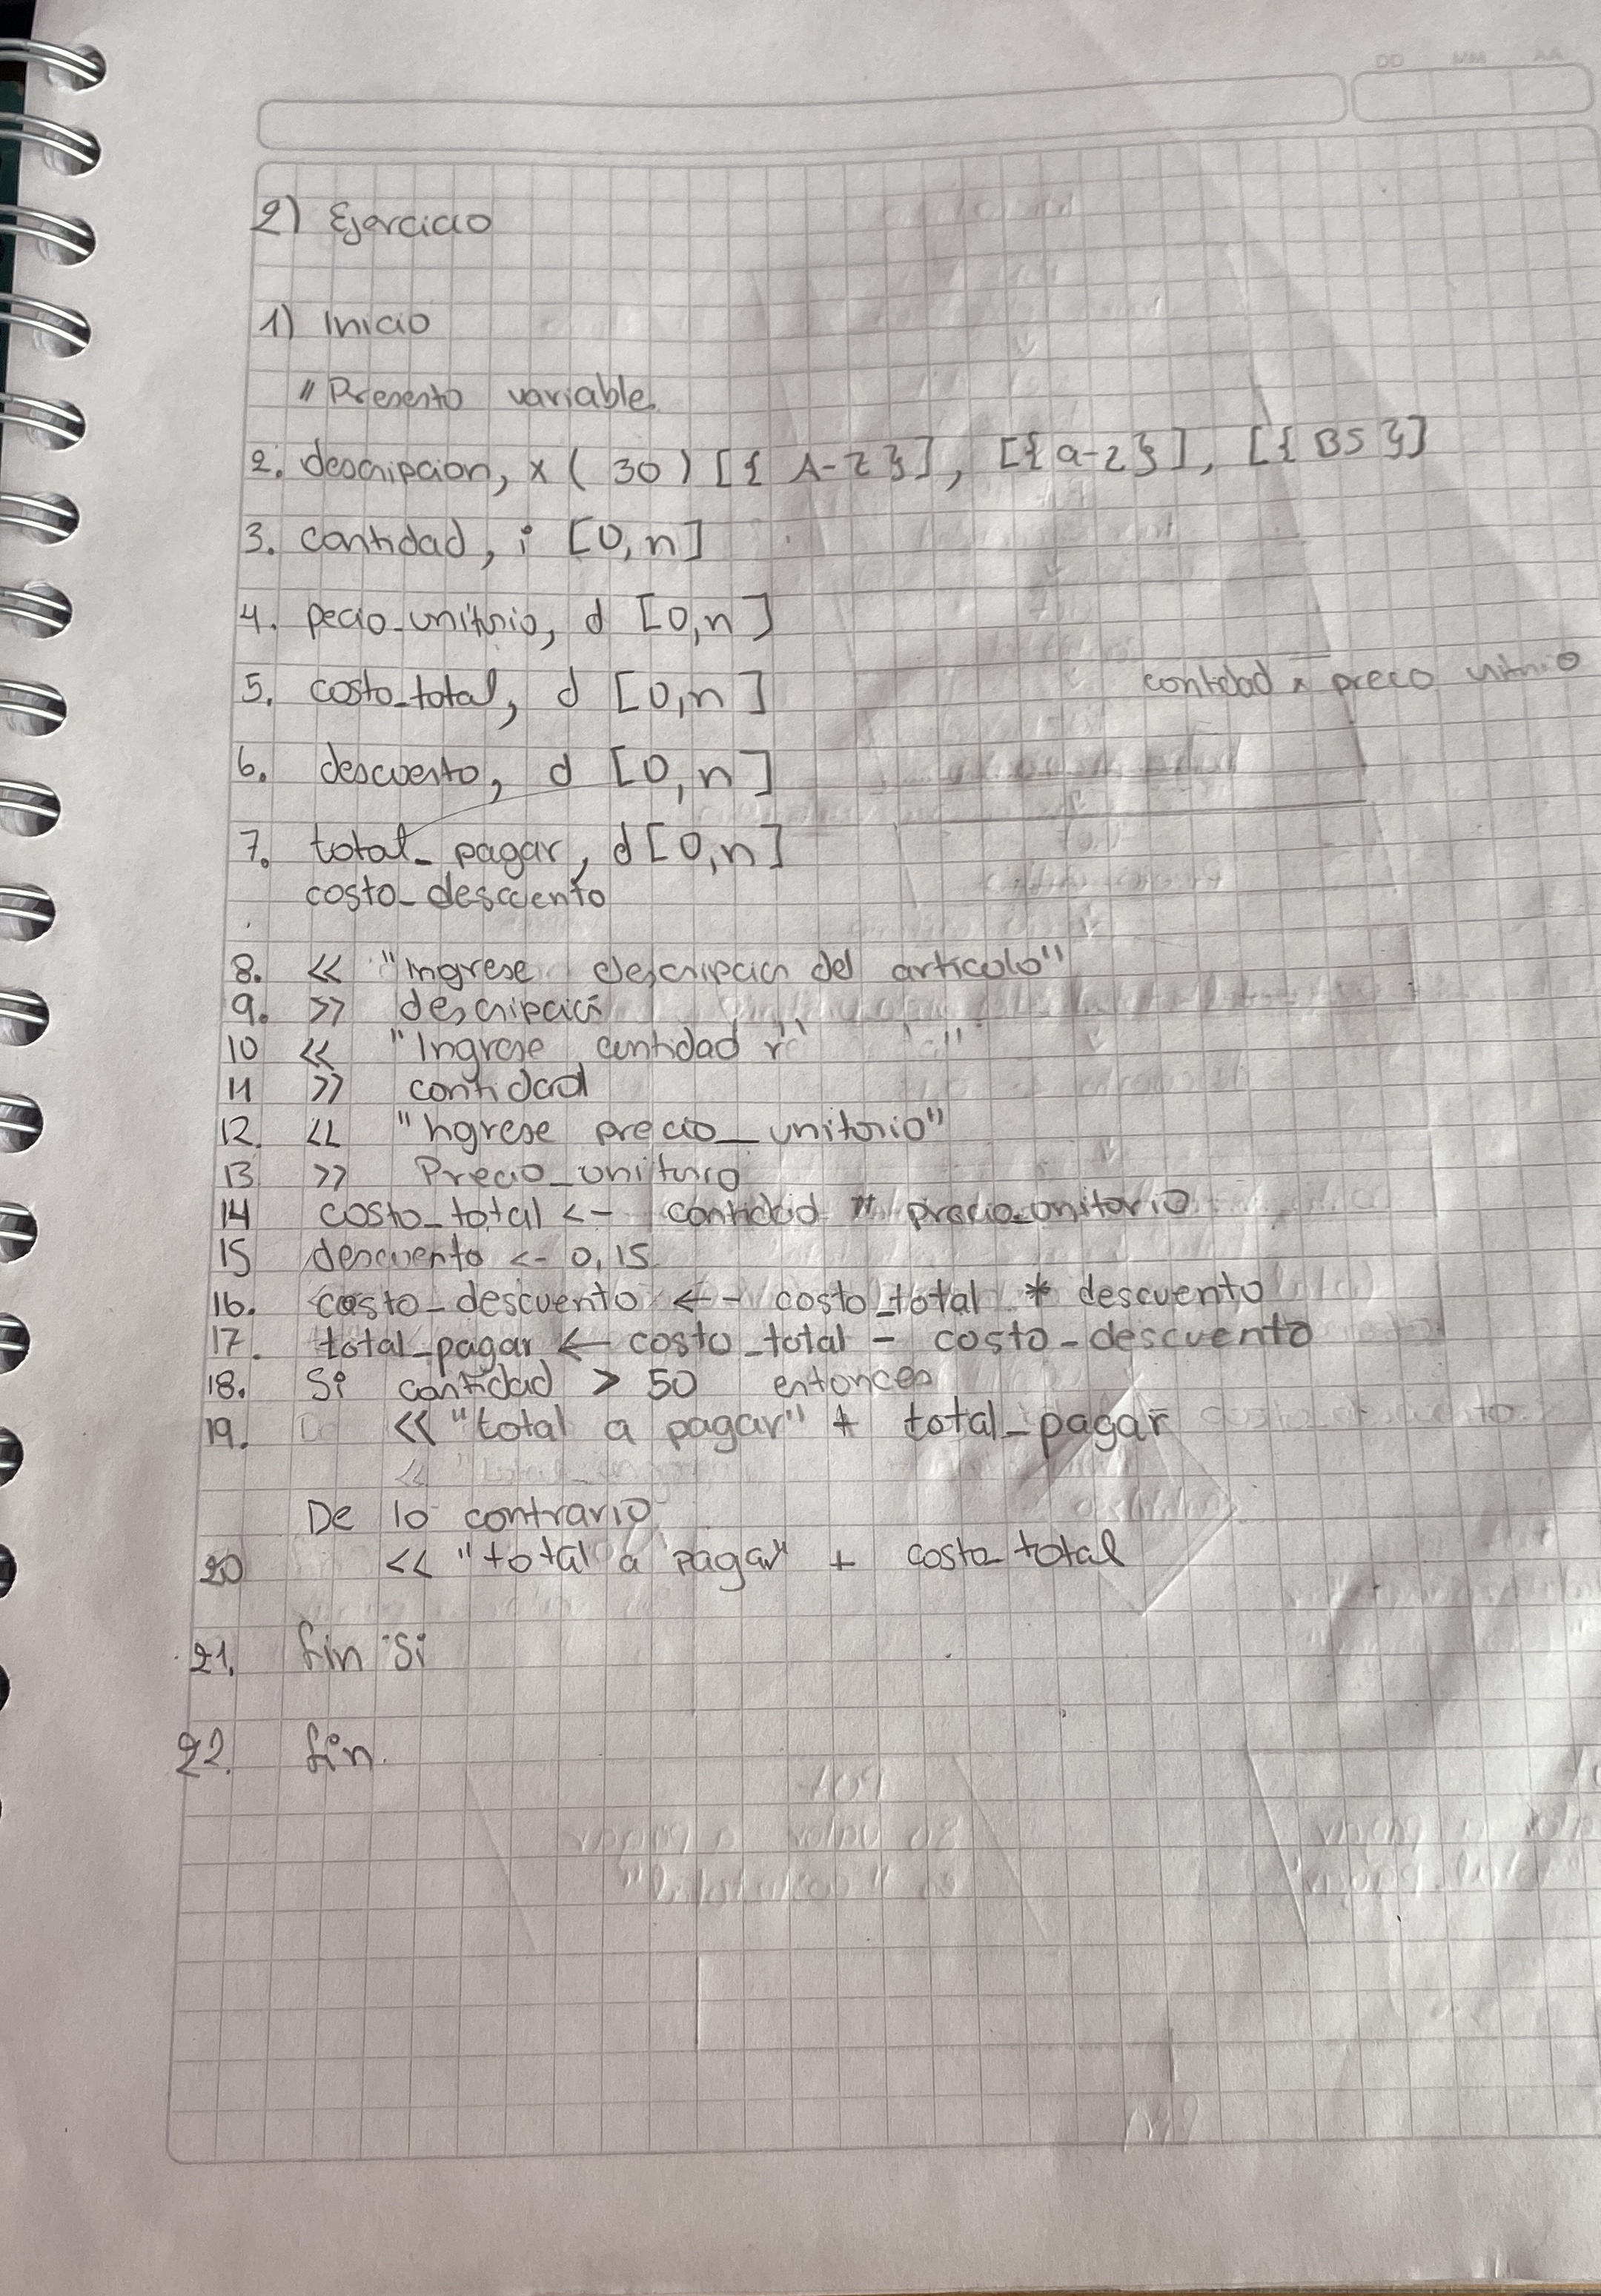 DD MM AA
2) Ejercicio
1) Inicio
// Presento variable
2. descripcion, x (30) [{ A-Z }], [{a-z}], [{ BS }]
3. cantidad, i [0,n]
4. pecio_unitario, d [0,n]
5. costo_total, d [0,n]
cantidad x preco unitrio
6. descuento, d [0,n]
7. total_ pagar, d [0,n]
costo_descuento
8. << "Ingrese descripcion del articulo"
9. >> descripcion
10 << "Ingrese cantidad "
11 >> cantidad
12. << "Ingrese precio_unitario"
13 >> Precio_unitario
14 costo_total <- cantidad * precio_unitario
15 descuento <- 0,15
16. costo_descuento <- costo_total * descuento
17. total_pagar <- costo_total - costo_descuento
18. Si cantidad > 50 entonces
19. << "total a pagar" + total_pagar
De lo contrario
20 << "total a pagar" + costo_total
21. fin si
22. fin.